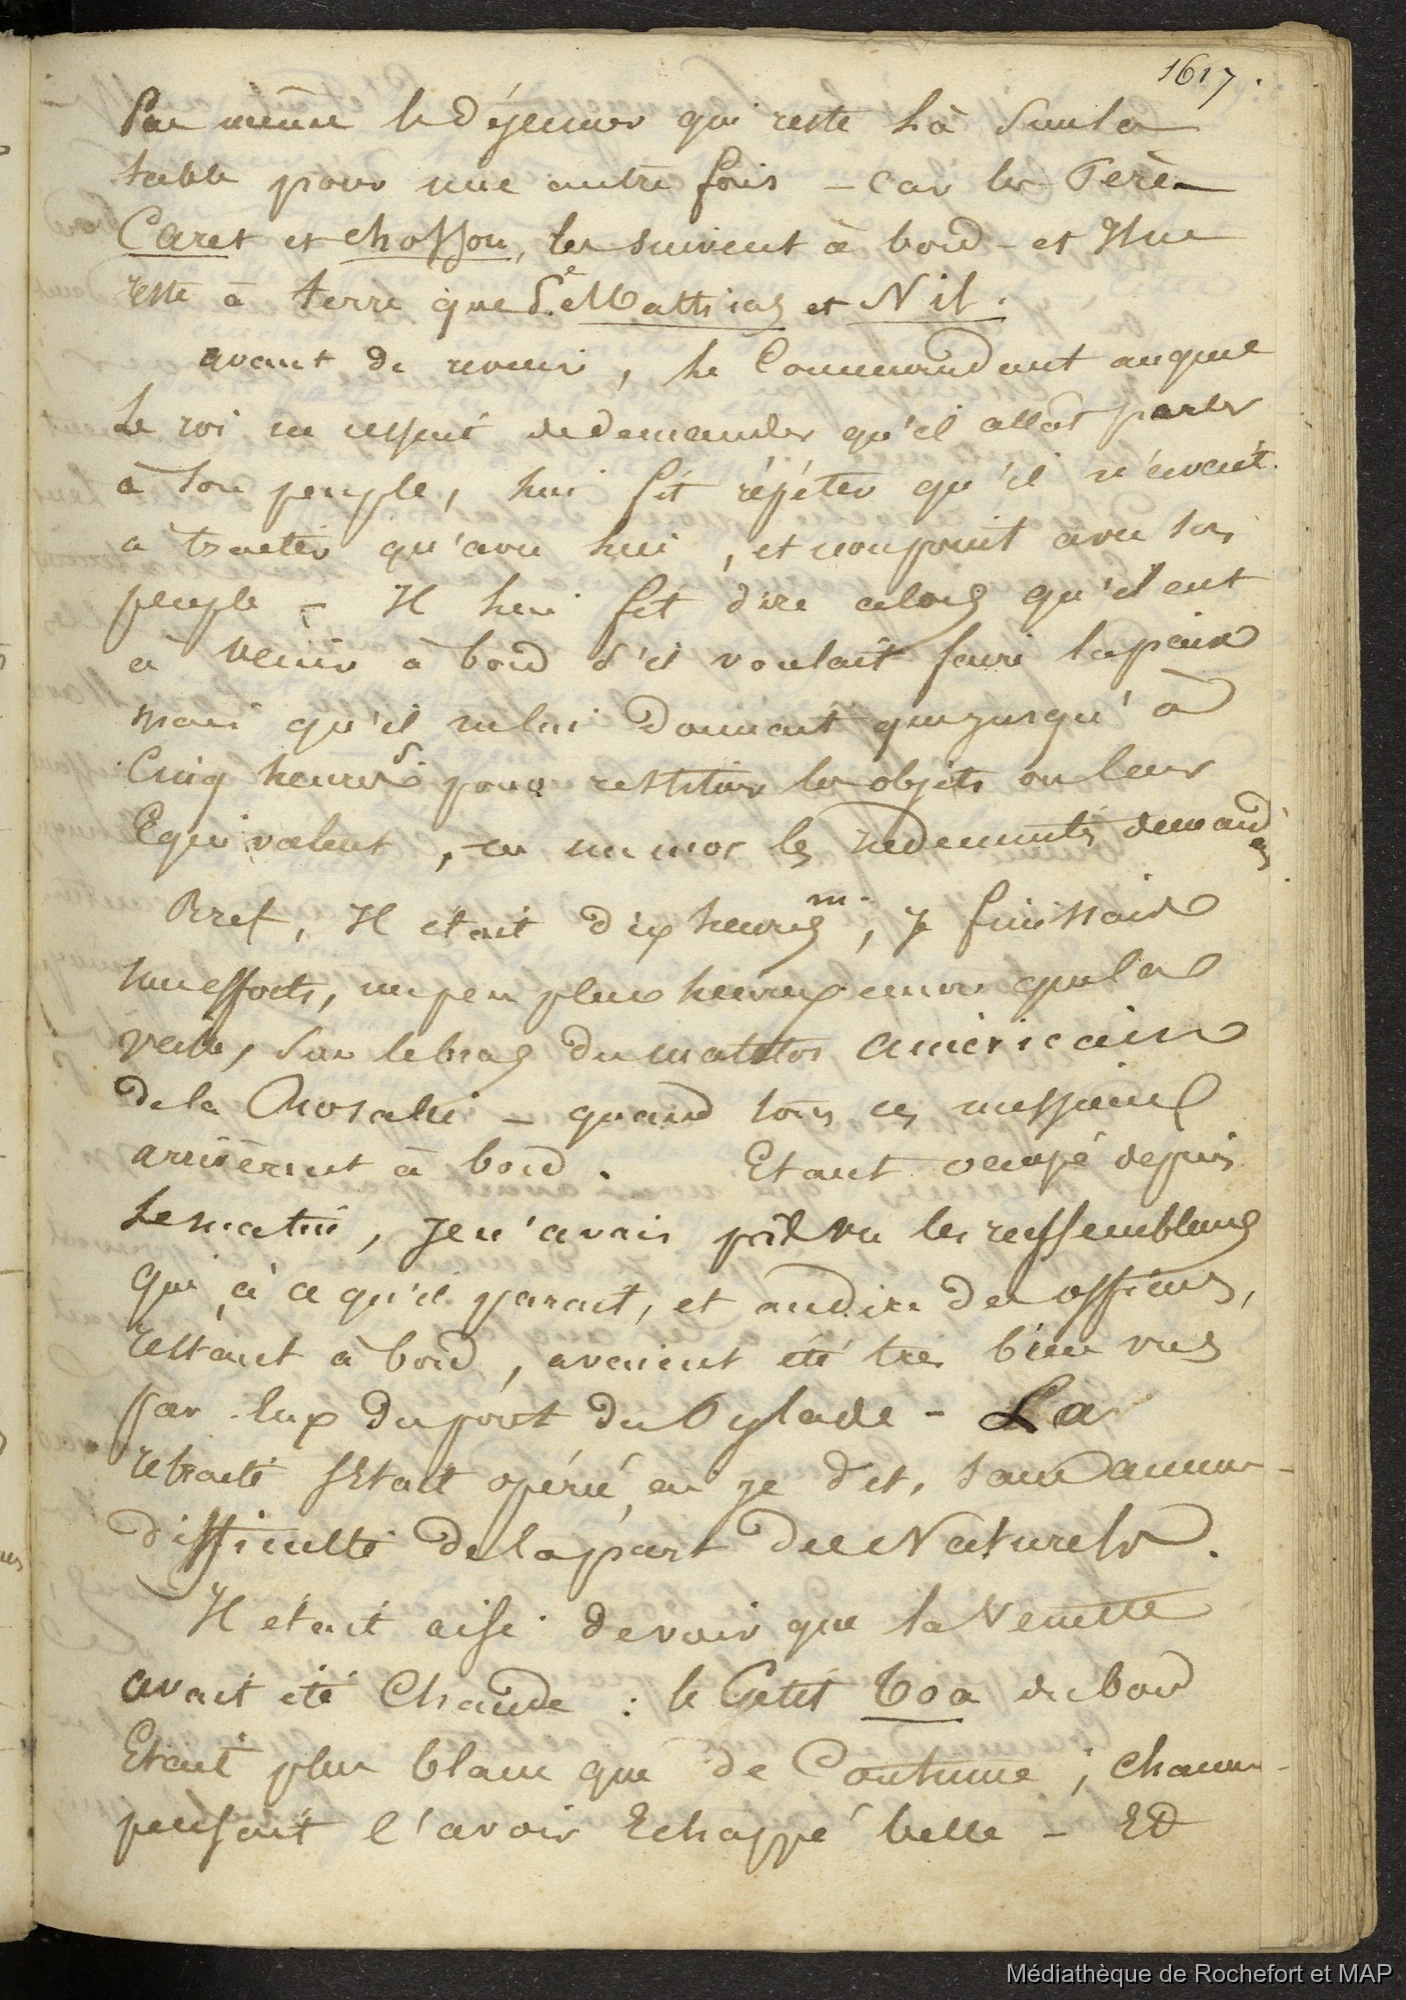 1617.
Pas même le déjeuner qui reste là sur la
table pour une autre fois - car les Pères
Caret et Chosson, les suivent à bord - et Il ne
reste à terre que Sr. Matthias et Nil.
avant de revenir, le Commandant auquel
le roi ne cessait de demander qu'il allât parler
à son peuple, lui fit répéter qu'il n'avait
à traiter qu'avec lui, et non point avec son
peuple - Il lui fit dire alors qu'il eut
à venir à bord s'il voulait faire la paix
mais qu'il ne lui donnait que jusqu'à
Cinq heures pour restituer les objets ou leur
Equivalent, en un mot les
Bref, Il était dix heures m., je finissais
mes efforts, un peu plus heureux encore que la
veille, sur le bras du matelot américain
de la Rosalie - quand tous ces messieurs
arrivèrent à bord. Etant occupé depuis
le matin, je n'avais pas vu les rassemblements
qui, à ce qu'il parait, et au dire des officiers,
restant à bord, avaient été très bien vus
par eux du pont du Pylade - La
retraite s'Etait opérée, ai je dit, sans aucune
difficulté de la part des Naturels.
Il etait aisé de voir que la Venette
avait été Chaude : le Petit Toa du bord
Etait plus blanc que de Coutume ; chacun
pensait l'avoir Echappé belle - Et
Médiathèque de Rochefort et MAP